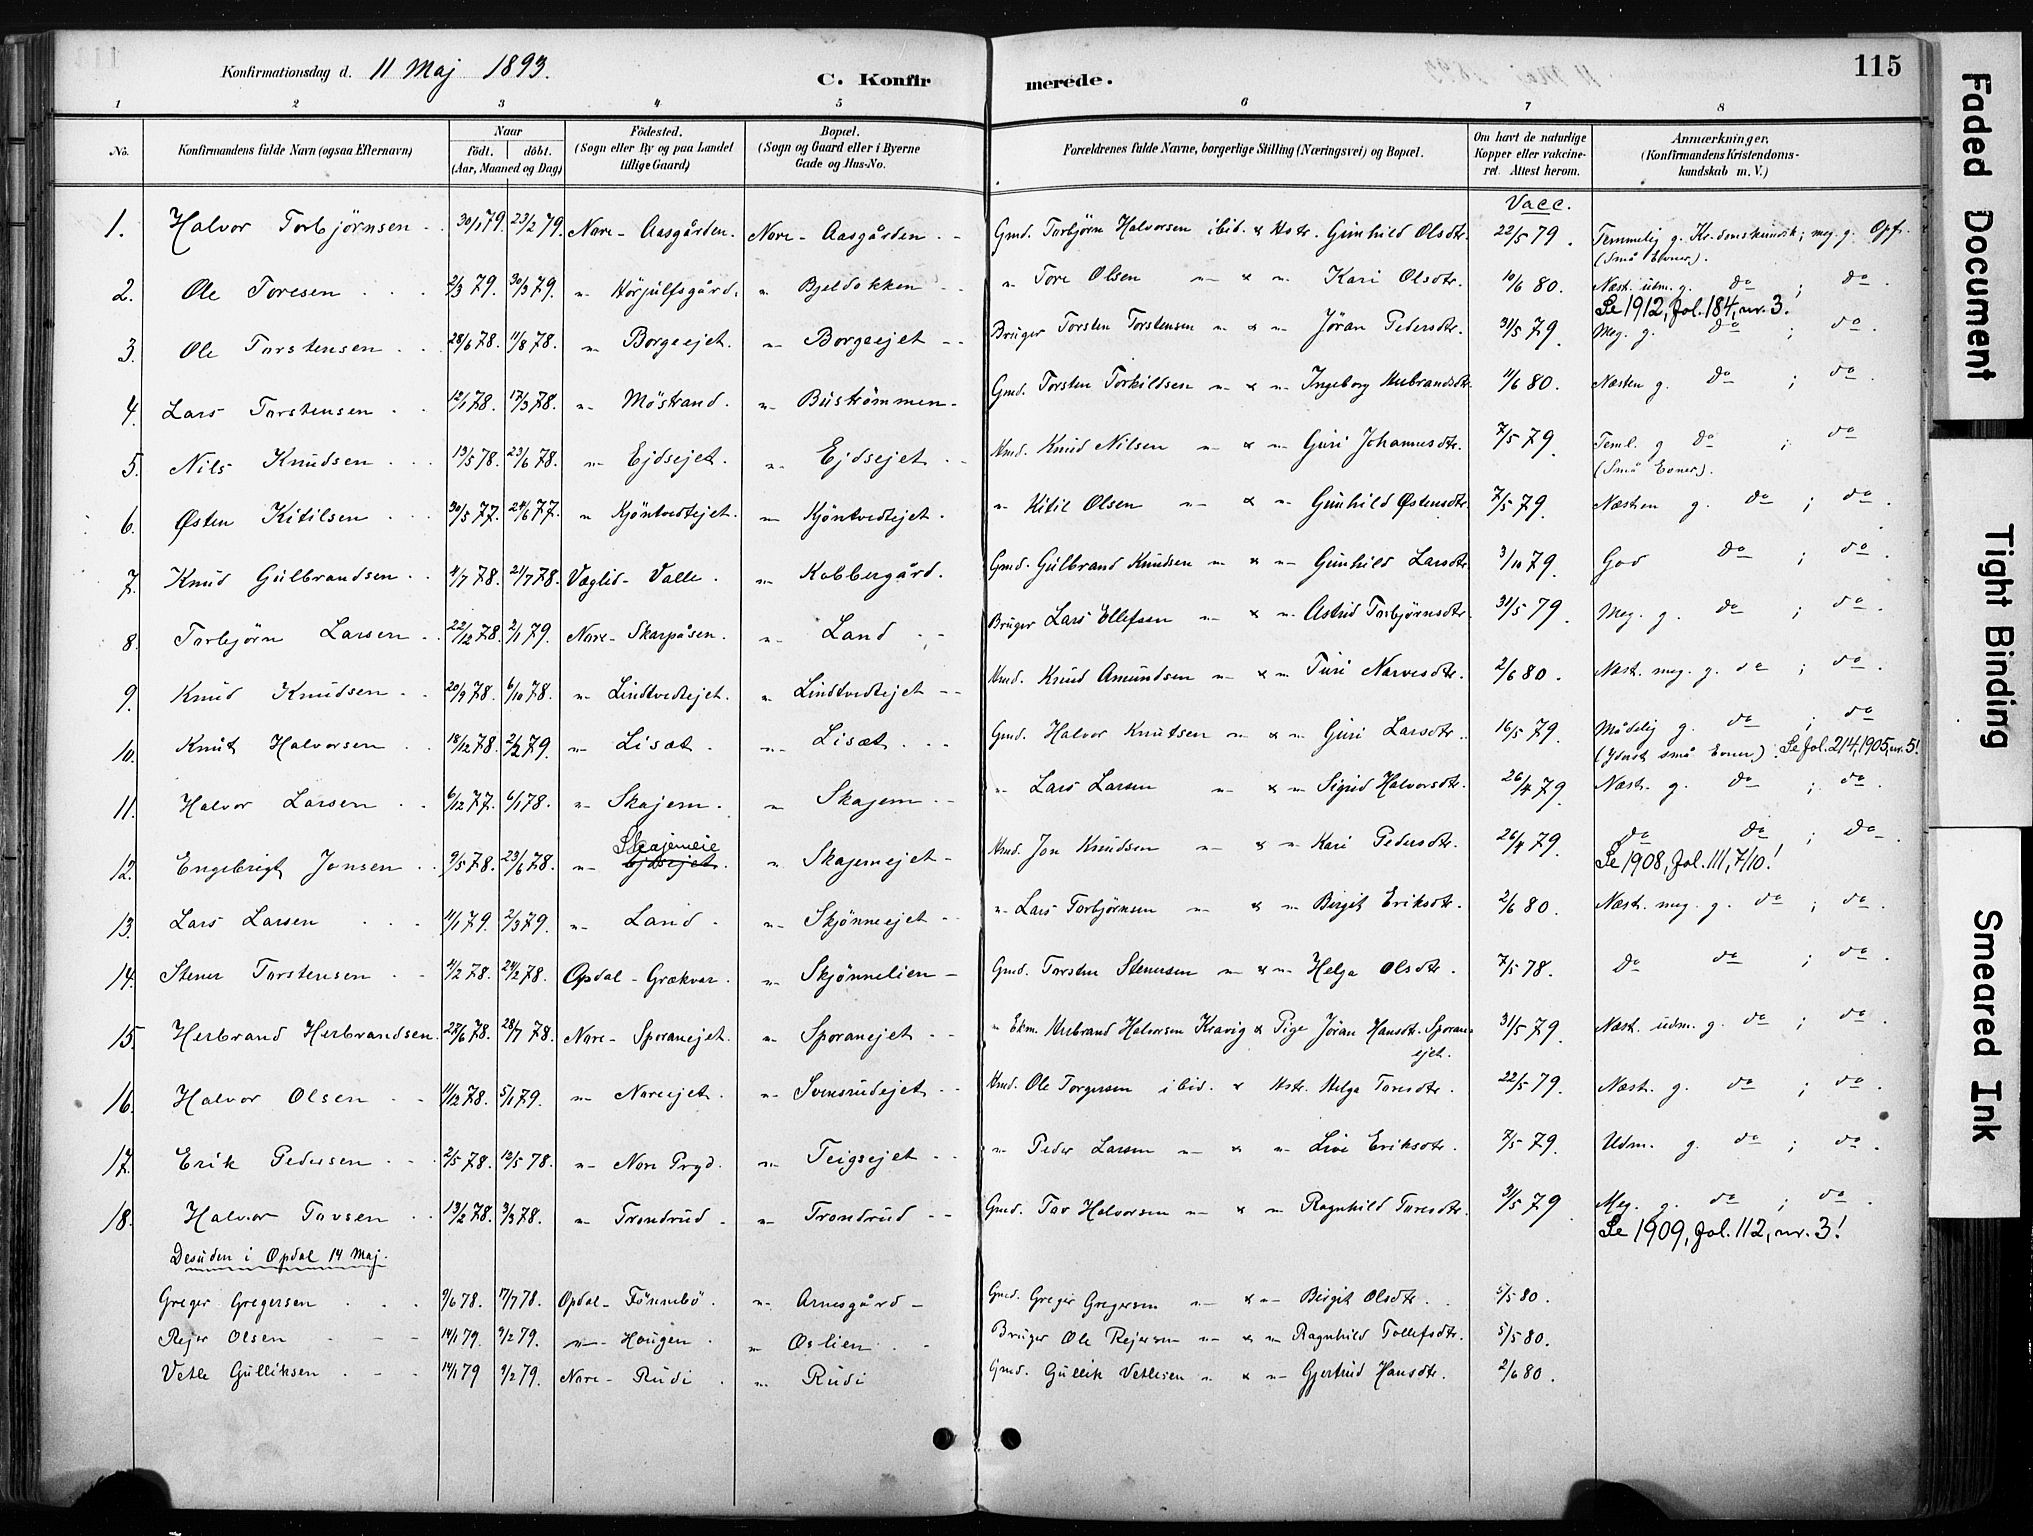 Konfirmationsdag d. 11 Maj 1893.
C. Konfirmerede.
115
1 2 3 4 5 6 7 8
No. Konfirmandens fulde Navn (ogsaa Efternavn) Naar født. døbt. (Aar, Maaned og Dag) Födested. (Sogn eller By og paa Landet tillige Gaard) Bopæl. (Sogn og Gaard eller i Byerne Gade og Hus-No. Forældrenes fulde Navne, borgerlige Stilling (Næringsvei) og Bopæl. Om havt de naturlige Kopper eller vakcineret. Attest herom. Anmærkninger, (Konfirmandens Kristendomskundskab m. V.)
Vacc.
1. Halvor Torbjørnsen 30/1 79. 23/2 79. Nore - Aasgården. Nore - Aasgården. Gmd. Torbjørn Halvorsen ibid. & Hstr. Gunhild Olsdtr. 22/5 79. Temmelig g. Kr.domskundsk; meg. g. Opf.
(Små Evner).
2. Ole Toresen 2/3 79. 30/3 79. " Hörjulfsgård. " Bjeldokken " Tore Olsen " & " Kari Olsdtr. 10/6 80. Næst. udm. g. do ; do.
Se 1912, fol. 184, nr. 3.
3. Ole Torstensen 28/6 78. 11/8 78. " Borgeejet. " Borgeejet Bruger Torsten Torstensen " & " Jöran Pedersdtr. 31/5 79. Meg. g. do ; do.
4. Lars Torstensen 12/1 78. 17/3 78. " Möstrand. " Buströmmen Gmd. Torsten Torkildsen " & " Ingeborg Herbrandsdtr. 11/6 80. Næsten g. do ; do.
5. Nils Knudsen 13/5 78. 23/6 78. " Ejdsejet. " Ejdsejet Hmd. Knud Nilsen " & " Guri Johannesdtr. 7/5 79. Teml. g do ; do
(Små Evner).
6. Østen Kitilsen 30/5 77. 24/6 77. " Kjöntvedtejet. " Kjöntvedtejet. " Kitil Olsen " & " Gunhild Østensdtr. 7/5 79. Næsten g. do ; do.
7. Knud Gulbrandsen 4/7 78. 21/7 78. Væglid - Valle. " Kobbergård. Gmd. Gulbrand Knudsen " & " Gunhild Larsdtr. 3/10 79. God do ; do.
8. Torbjørn Larsen 22/12 78. 2/1 79. Nore - Skarpåsen. " Land Bruger Lars Ellefsen " & " Astrid Torbjørnsdtr. 31/5 79. Meg. g. do ; do.
9. Knud Knudsen 20/9 78. 6/10 78. " Lindtvedtejet. " Lindtvedtejet Hmd. Knud Amundsen " & " Turi Narvesdtr. 2/6 80. Næst. meg. g. do ; do.
10. Knut Halvorsen 18/12 78. 2/2 79. " Lisæt. " Lisæt. Gmd. Halvor Knutsen " & " Guri Larsdtr. 16/5 79. Mådelig g. do ; do
(Yderst små Evner). Se fol. 214, 1905, nr. 5!
11. Halvor Larsen 6/12 77. 6/1 78. " Skajem. " Skajem. " Lars Larsen " & " Sigrid Halvorsdtr. 26/4 79. Næst. g. do ; do.
12. Engebrigt Jonsen 9/5 78. 23/6 78. " Skajemeie Ejdsejet. " Skajemejet Hmd. Jon Knudsen " & " Kari Pedersdtr. 26/4 79. do do ; do
Se 1908, fol. 111, 7/10!
13. Lars Larsen 4/1 79. 2/3 79. " Land. " Skjönneejet " Lars Torbjørnsen " & " Birgit Eriksdtr. 2/6 80. Næst. meg. g. do ; do.
14. Stener Torstensen 4/2 78. 24/2 78. Opdal - Grækvar. " Skjönnelien Gmd. Torsten Stenersen " & " Helga Olsdtr. 7/5 78. do do ; do.
15. Herbrand Herbrandsen. 27/6 78. 28/7 78. Nore - Sporanejet. " Sporanejet " Ekm. Herbrand Halvorsen Kravig & Pige Jöran Hansdt. Sporanejet. 31/5 79. Næst. udm. g. do ; do.
16. Halvor Olsen 11/12 78. 5/1 79. " Noreejet. " Svensrudejet Hmd. Ole Torgersen ibid. & Hstr. Helga Toresdtr. 22/5 79. Næst. g. do ; do.
17. Erik Pedersen 2/5 78. 12/5 78. " Nore Prgd. " Teigsejet " Peder Larsen " & " Live Eriksdtr. 7/5 79. Udm. g. do ; do.
18. Halvor Tovsen 13/2 78. 3/3 78. " Trondrud " Trondrud Gmd. Tov Halvorsen " & " Ragnhild Toresdtr. 31/5 79. Meg. g. do ; do.
Se 1909, fol. 112, nr. 3!
Desuden i Opdal 14 Maj.
Greger Gregersen 9/6 78. 7/7 78. Opdal - Fönnebö. " Arnesgård Gmd. Greger Gregersen " & " Birgit Olsdtr. 5/5 80.
Rejer Olsen 14/1 79. 9/2 79. " Haugen. " Oslien Bruger Ole Rejersen " & " Ragnhild Tollefsdtr. 5/5 80.
Vetle Gulliksen 14/1 79 9/2 79. Nore - Rudi. " Rudi Gmd. Gullik Vetlesen " & " Gjertrud Hansdtr. 2/6 80.
Faded Document
Tight Binding
Smeared Ink